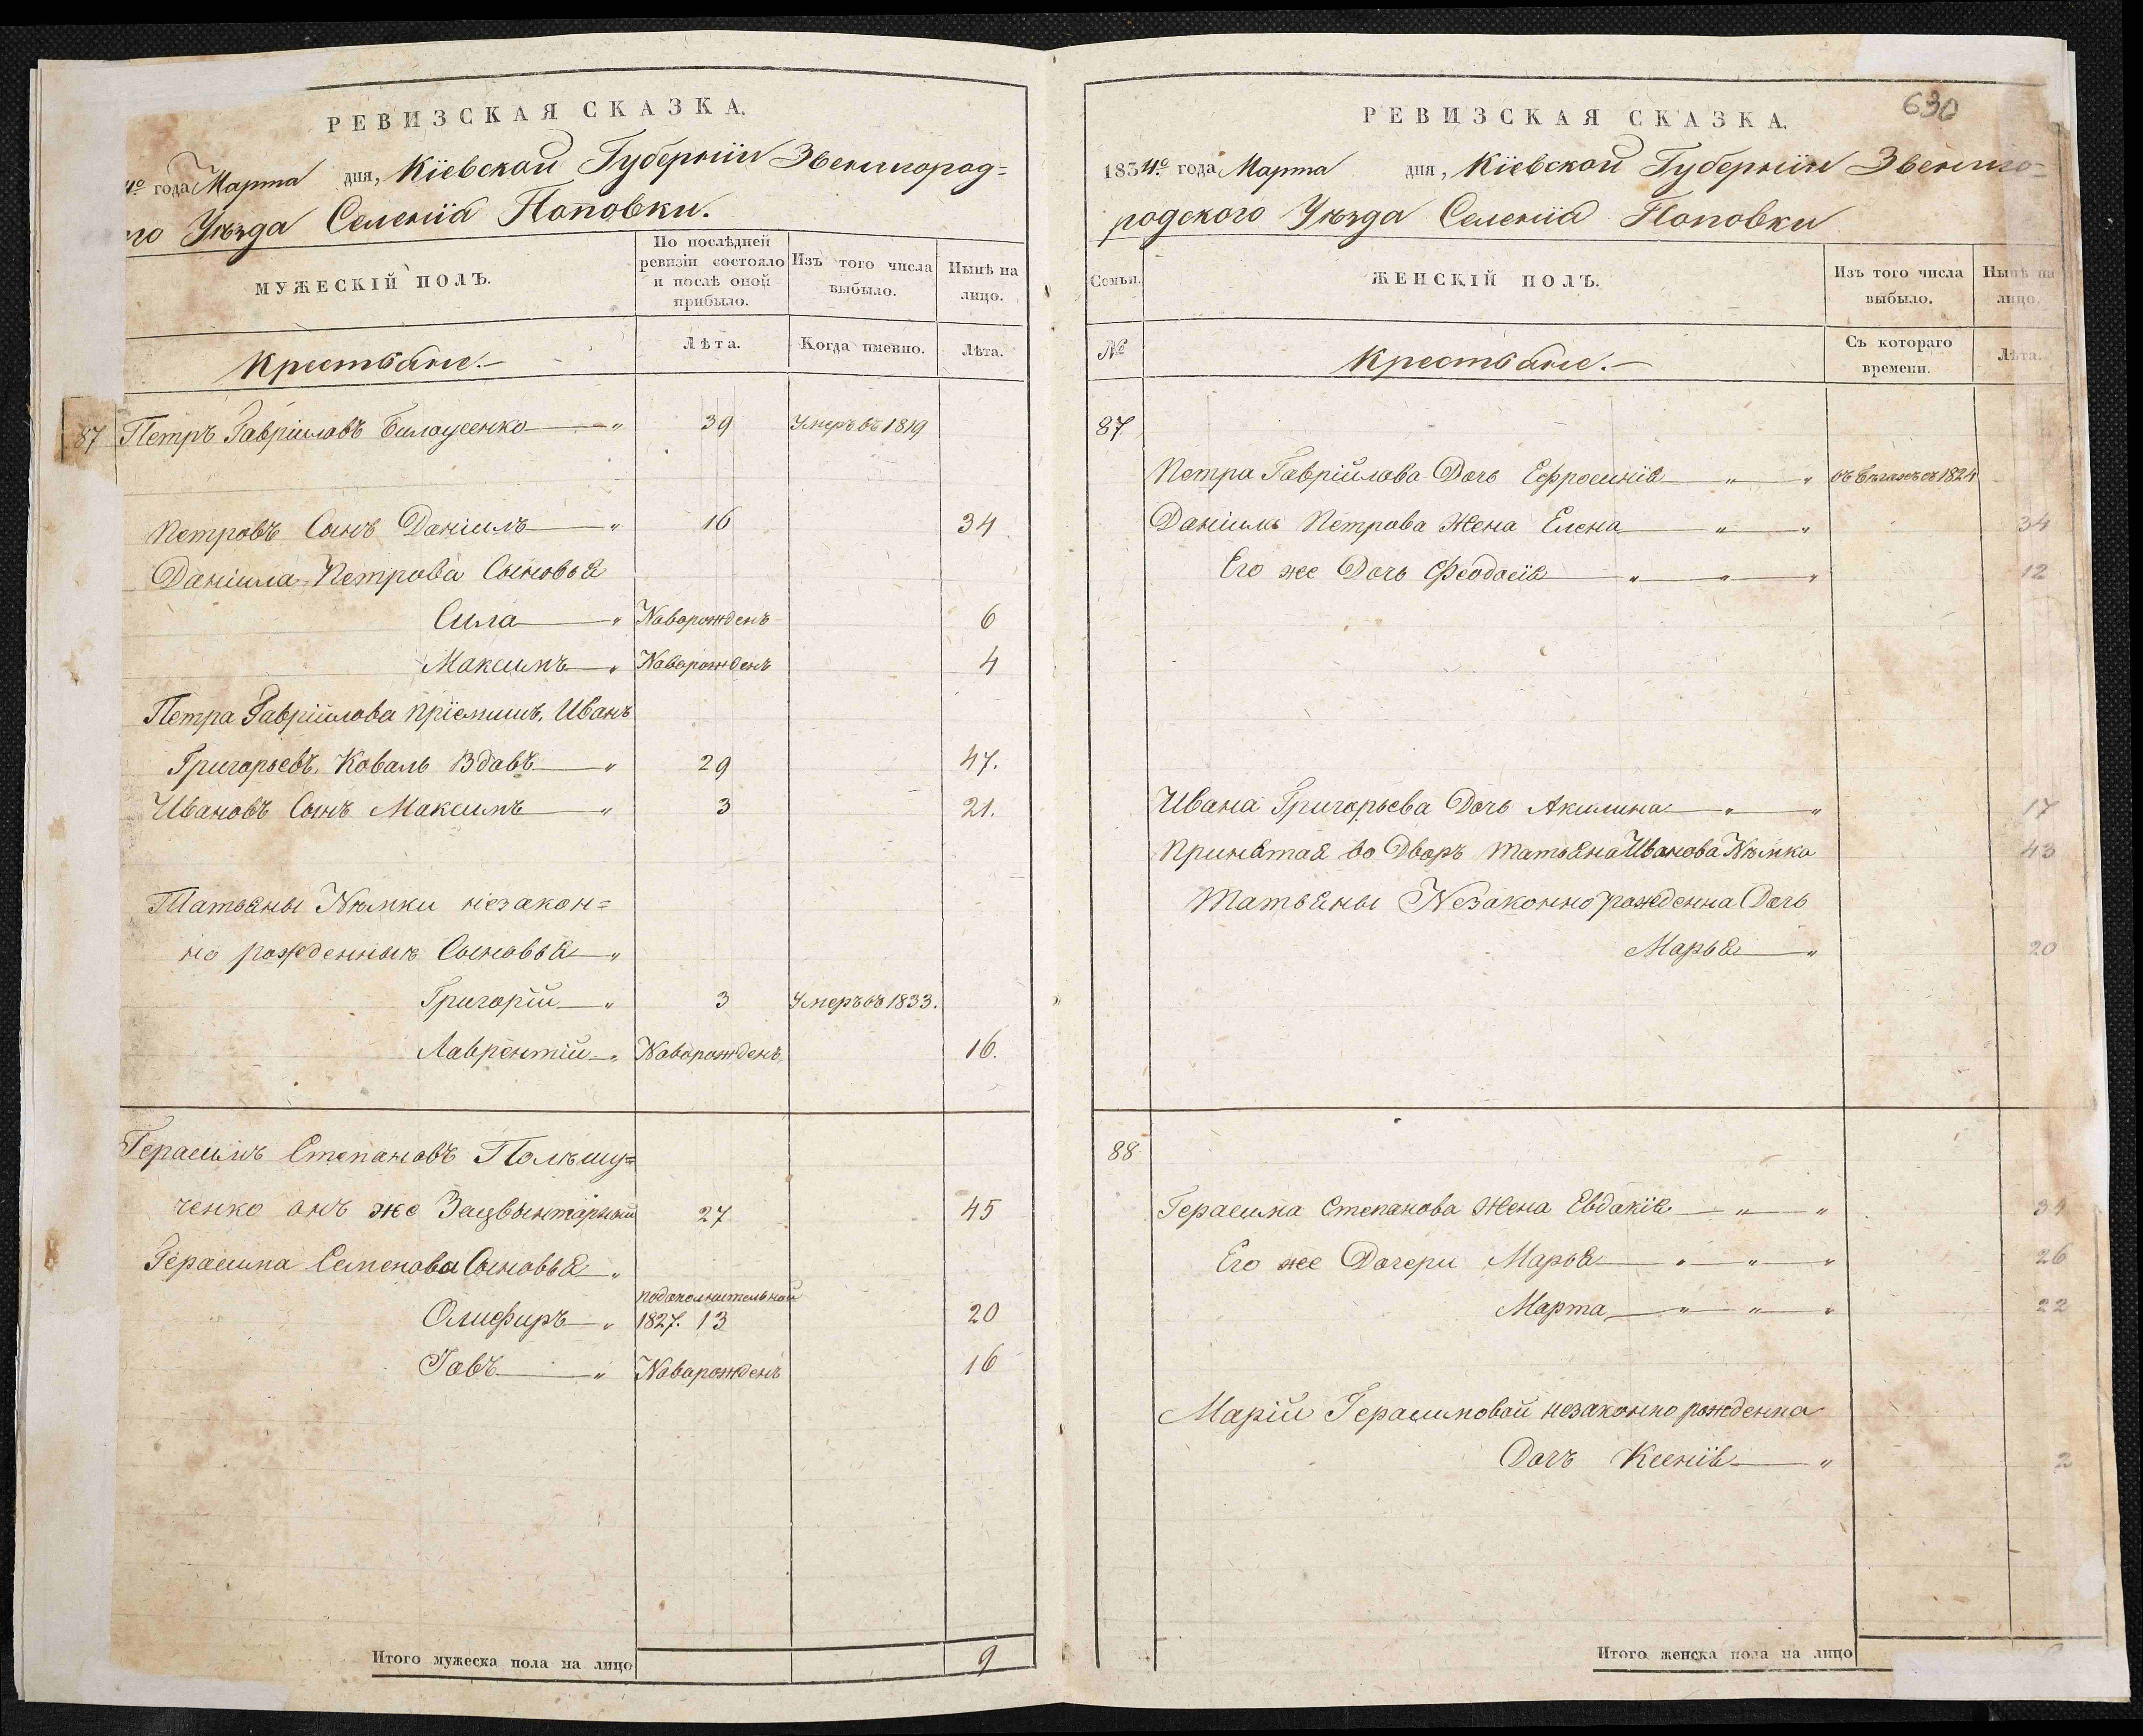 РЕВИЗСКАЯ СКАЗКА.
4го года Марта дня, Кіевской Губерніи Звенигород=
го Уѣзда Селенія Поповки.
МУЖЕСКІЙ ПОЛЪ.
По послѣдней ревизіи состояло и послѣ оной прибыло.
Изъ того числа выбыло.
Нынѣ на лицо.
Крестьяне.
Лѣта.
Когда именно.
Лѣта.
87 Петръ Гавріиловъ Билоусенко 39 Умеръ въ 1819
Петровъ Сынъ Даніилъ 16 34
Даніила Петрова Сыновья
Сила Новорожденъ 6
Максимъ Новорожденъ 4
Петра Гавріилова Пріемышъ, Иванъ
Григорьевъ, Коваль Вдовъ 29 47.
Ивановъ Сынъ Максимъ 3 21.
Татьяны Нѣмки незакон=
но рожденныя Сыновья
Григорій 3 Умеръ въ 1833.
Лаврентій Новорожденъ 16.
Герасимъ Степановъ Полѣшу=
ченко онъ же 27 45
Герасима Семенова Сыновья
Олиферъ по дополнительной 1827. 13 20
Іовъ Новорожденъ 16
Итого мужеска пола на лицо 9
630
РЕВИЗСКАЯ СКАЗКА.
1834го года Марта дня, Кіевской Губерніи Звениго=
родского Уѣзда Селенія Поповки
Семьи.
ЖЕНСКІЙ ПОЛЪ.
Изъ того числа выбыло.
Нынѣ на лицо.
№
Крестьяне.
Съ котораго времени.
Лѣта.
87
Петра Гавріилова Дочь Ефросинія въ бѣгахъ съ 1824
Даніила Петрова Жена Елена 34
Его же Дочь Феодосія 12
Ивана Григорьева Дочь Акилина 17
Принятая во Дворъ Татьяна Иванова Нѣмка 43
Татьяны Незаконно рожденна Дочь
Марья 20
88
Герасима Степанова Жена Евдокія
Его же Дочери Марья 26
Марта 22
Маріи Герасимовой незаконно рожденна
Дочъ Ксенія 2
Итого женска пола на лицо